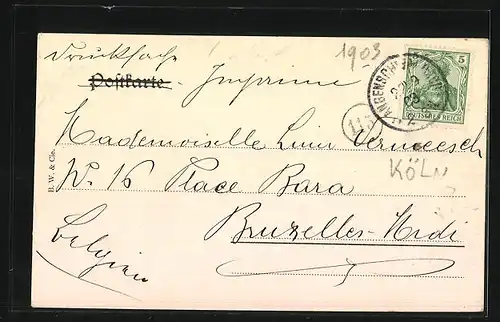 Drucksache
1903
Postkarte
Imprimé
5
DEUTSCHES REICH
Mademoiselle
No. 16 Place Bara
KÖLN
Bruxelles-Midi
Belgien
B. W. & Cie.